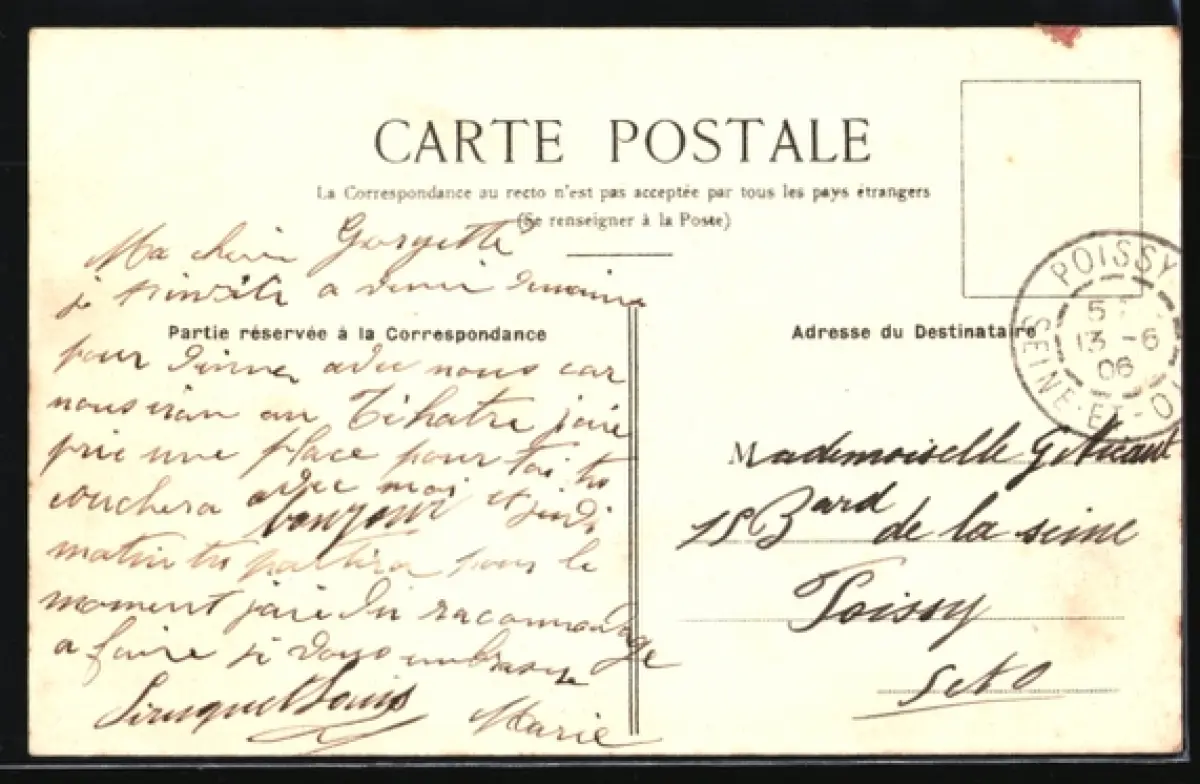 CARTE POSTALE
La Correspondance au recto n'est pas acceptée par tous les pays étrangers
(Se renseigner à la Poste)
Ma chérie Georgette
je t'invite a venir demain
Partie réservée à la Correspondance
pour dinner avec nous car
nous iran au Tihatre jaie
prie une place pour toi tu
couchera avec moi et jeudi
bonjour
matin tu partira pour le
moment jaie du racommodage
a faire je vous embrasse
Louis
Marie
Adresse du Destinataire
POISSY
5
13 -6
06
SEINE-ET-O
Mademoiselle G.
15 Bard de la seine
Poissy
S et O